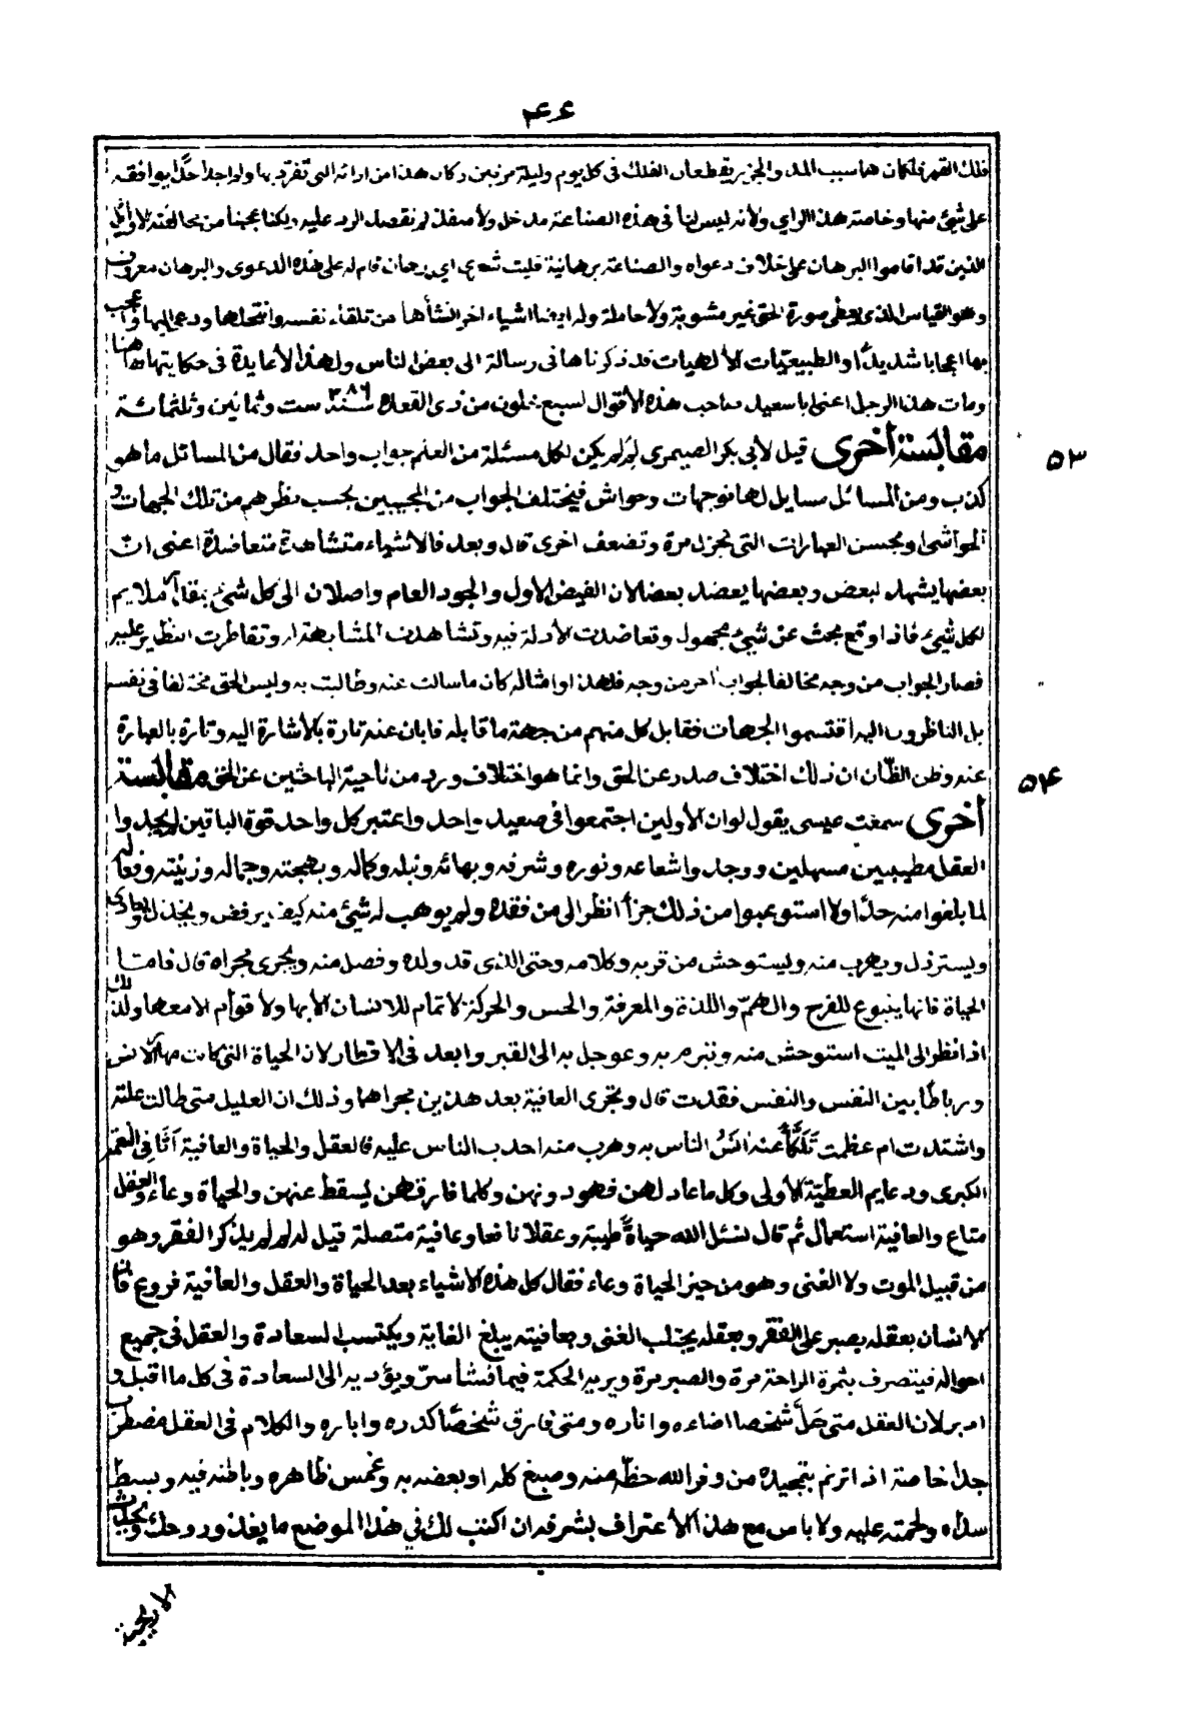 ٤٤
فلك القمر فلكان هما سبب المد والجزر يقطعان الفلك فى كل يوم وليلة مرتين وكان هذا من ارائه التى تفرد بها ولم اجد احدًا يوافقه
على شئ منها وخاصة هذا الراي ولانه ليس لنا فى هذه الصناعة مدخل ولا منفذ لم نقصد الرد عليه ولكنا عجبنا من مخالفته للاوائل
الذين قد اقاموا البرهان على خلاف دعواه والصناعة برهانية فليت شعرى اي برهان قام له على هذه الدعوى والبرهان معروف
وهو القياس الذى يعطى صورة الحق غير مشوبة ولا حاملة وله ايضا اشياء اخر انشأها من تلقاء نفسه وانتحلها ودعى اليها واعجب
بها اعجابا شديدًا والطبيعيات الالهيات قد ذكرناها فى رسالة الى بعض الناس ولهذا لا فايدة فى حكايتها هاهنا
ومات هذا الرجل اعنى اباسعيد صاحب هذه الاقوال لسبع خلون من ذى القعدة سنة ٣٨٦ ست وثمانين وثلثمائة
مقابسة أخرى قيل لأبى بكر الصيمرى لم لم يكن لكل مسئلة من العلم جواب واحد فقال من المسائل ما هو
كذب ومن المسائل مسايل لها توجهات وحواش فيختلف الجواب من المجيبين بحسب نظرهم من تلك الجهات و
الحواشى وبحسن العبارات التى تجزل مرة وتضعف اخرى قال وبعد فالاشياء متشاهدة متعاضدة اعنى انّ
بعضها يشهد لبعض وبعضها يعضد بعضا لان الفيض الاول والجود العام واصلان الى كل شئ بمقدار ملايم
لكل شئ فاذا وقع بحث عن شئ مجهول وتعاضدت الأدلة فيه وتشاهدت المشابهة له وتقاطرت النظير عليه
فصار الجواب من وجه مخالفا لجواب آخر من وجه فلهذا وامثاله كان ما سالت عنه وطالبت به وليس الحق مختلفا فى نفسه
بل الناظرون اليه اقتسموا الجهات فقابل كل منهم من جهة ما قابله فابان عنه تارة بالأشارة اليه وتارة بالعبارة
عنه وظن الظّان ان ذلك اختلاف صدر عن الحق وانما هو اختلاف ورد من ناحية الباحثين عن الحق مقابسة
أخرى سمعت عيسى يقول لو ان الاولين اجتمعوا فى صعيد واحد واعتبر كل واحد قوة الباقين ليجدوا
العقل مطيبين مسهلين ووجدوا شعاعه ونوره وشرفه وبهائه ونبله وكماله وبهجته وجماله وزينته وفعاله
لما بلغوا منه حدًا ولا استوعبوا من ذلك جزأً انظر الى من فقده ولم يوهب له شئ منه كيف يرفض ويخذل ويعادى
ويسترذل ويهرب منه ويستوحش من قربه وكلامه وحتى الذى قد ولده وفصل منه ويجرى مجراه قال فامّا
الحياة فانها ينبوع للفرح والهمّ واللذة والمعرفة والحس والحركة لا تمام للانسان الا بها ولا قوام الا معها ولذلك
اذا نظر الى الميت استوحش منه وتبرم به وعوجل به الى القبر وابعد فى الاقطار لان الحياة التى كانت بها الانس
ورباطًا بين النفس والنفس فقدت قال وتجرى العافية بعد هذين مجراهما وذلك ان العليل متى طالت علته
واشتدت ام عظمت تَلَكّأ عنه انسُ الناس به وهرب منه احدب الناس عليه فالعقل والحياة والعافية أثافى النعم
الكبرى ودعايم العطيّة الأولى وكل ما عاد لهن فهو دونهن وكلما فارقهن يسقط عنهن والحياة وعاء والعقل
متاع والعافية استعمال ثم قال نسئل الله حياةً طيبة وعقلا نافعا وعافية متصلة قيل له لم لم يذكر الفقر وهو
من قبيل الموت ولا الغنى وهو من حيز الحياة وعاء فقال كل هذه الاشياء بعد الحياة والعقل والعافية فروع فان
الانسان بعقله يصبر على الفقر وبعقله يجتلب الغنى وبعافيته يبلغ الغاية ويكتسب السعادة والعقل فى جميع
احواله فيتصرف بثمرة الراحة مرة والصبر مرة ويريه الحكمة فيما نشأ سرّ ويؤديه الى السعادة فى كل ما اقبل و
ادبر لان العقل متى حَلّ شخصا اضاءه واناره ومتى فارق شخصًا كدره واباره والكلام فى العقل مضطرب
جدا خاصة اذا ترنم بتمجيده من وفر الله حظّه منه وصبغ كله او بعضه به وغمس ظاهره وباطنه فيه وبسط
سداه ولحمته عليه ولا باس مع هذا الاعتراف بشرفه ان اكتب لك فى هذا الموضع ما يغذو روحك
الاريحية
٥٣
٥٤